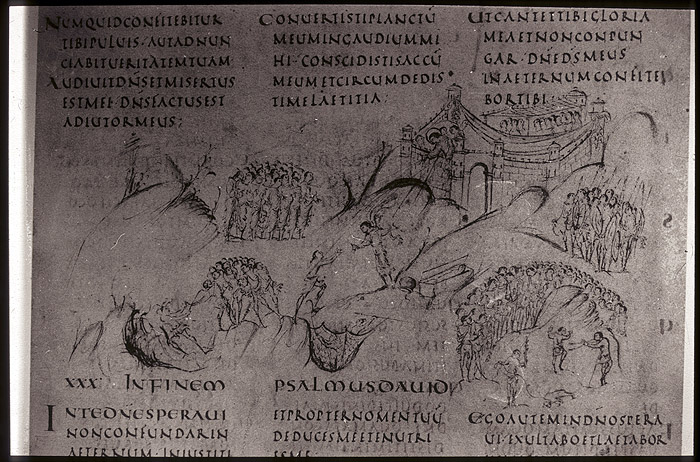 NUMQUIDCONFITEBITUR
TIBIPULUIS·AUTADNUN
CIABITUERITATEMTUAM
AUDIUITDN̄SETMISERTUS
ESTMEI·DN̄SFACTUSEST
ADIUTORMEUS;
CONUERTISTIPLANCTŪ
MEUMINGAUDIUMMI
HI·CONSCIDISTISACCŪ
MEUMETCIRCUMDEDIS
TIMELAETITIA·
UTCANTETTIBIGLORIA
MEAETNONCONPUN
GAR·DN̄EDS̄MEUS
INAETERNUMCONFITE
BORTIBI·
XXX· INFINEM PSALMUSDAUID
INTEDN̄ESPERAUI
NONCONFUNDARIN
AETERNUM·INIUSTITI
ETPROPTERNOMENTUŪ
DEDUCESMEETENUTRI
ESME·
EGOAUTEMINDN̄OSPERA
UI·EXULTABOETLAETABOR